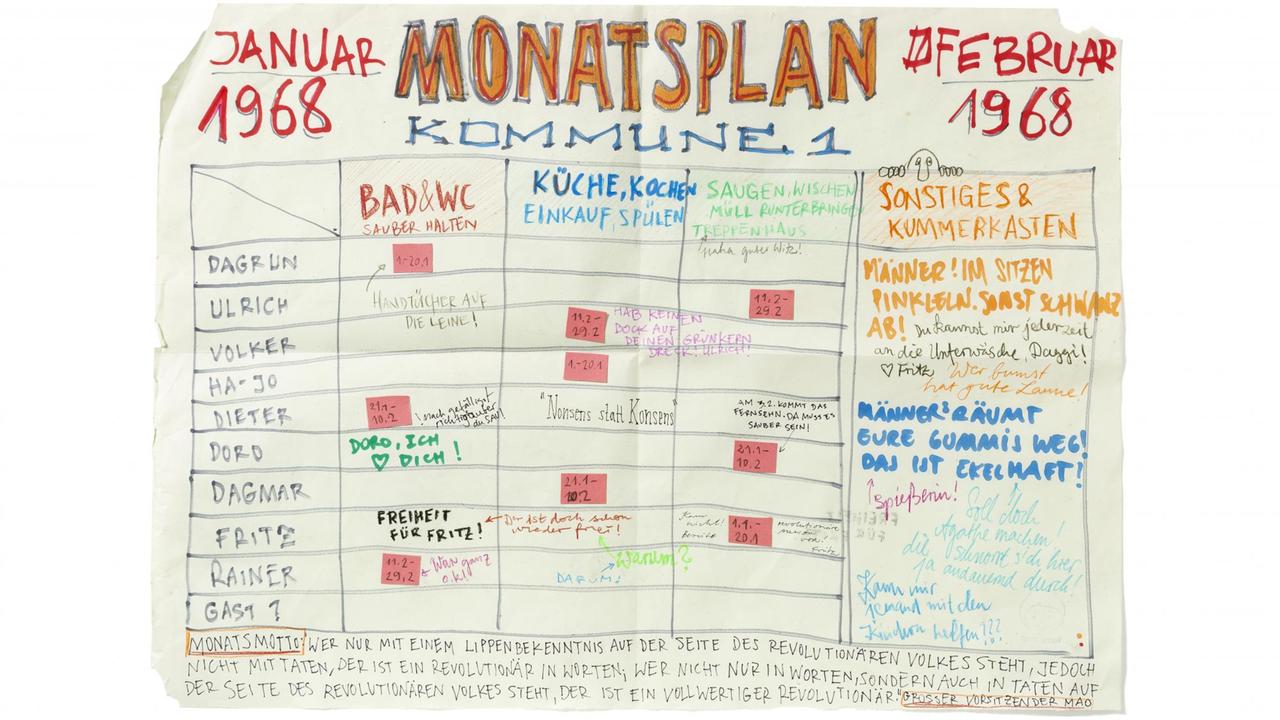 JANUAR
1968
MONATSPLAN
KOMMUNE 1
FEBRUAR
1968
BAD&WC
SAUBER HALTEN
KÜCHE, KOCHEN
EINKAUF, SPÜLEN
SAUGEN, WISCHEN
MÜLL RUNTERBRINGEN
TREPPENHAUS
haha guter Witz!
SONSTIGES &
KUMMERKASTEN
DAGRUN
1.-20.1
HANDTÜCHER AUF
DIE LEINE!
ULRICH
11.2-
29.2
11.2-
29.2
HAB KEINEN
BOCK AUF
DEINEN GRÜNKERN
DRECK! ULRICH!
VOLKER
1.-20.1
HA-JO
DIETER
21.1-
10.2
"Nonsens statt Konsens"
AM 3.2. KOMMT DAS
FERNSEHN. DA MUSS ES
SAUBER SEIN!
DORO
DORO, ICH
♡ DICH!
21.1-
10.2
DAGMAR
21.1-
10.2
FRITZ
FREIHEIT
FÜR FRITZ!
Der ist doch schon
wieder frei!
1.1.-
20.1
Fritz
Warum?
DARUM!
RAINER
11.2-
29.2
War ganz
o.k!
GAST?
MÄNNER! IM SITZEN
PINKLELN. SONST SCHWANZ
AB! Du kannst mir jederzeit
an die Unterwäsche, Daggi!
♡ Fritz Wer bumst
hat gute Laune!
MÄNNER: RÄUMT
EURE GUMMIS WEG!
DAS IST EKELHAFT!
Spießerin!
Soll doch
Agathe machen!
die schnorrt s'ch hier
ja andauernd durch!
Kann mir
jemand mit den
Kindern helfen???
MONATSMOTTO: WER NUR MIT EINEM LIPPENBEKENNTNIS AUF DER SEITE DES REVOLUTIONÄREN VOLKES STEHT, JEDOCH
NICHT MIT TATEN, DER IST EIN REVOLUTIONÄR IN WORTEN; WER NICHT NUR IN WORTEN, SONDERN AUCH IN TATEN AUF
DER SEITE DES REVOLUTIONÄREN VOLKES STEHT, DER IST EIN VOLLWERTIGER REVOLUTIONÄR." GROSSER VORSITZENDER MAO